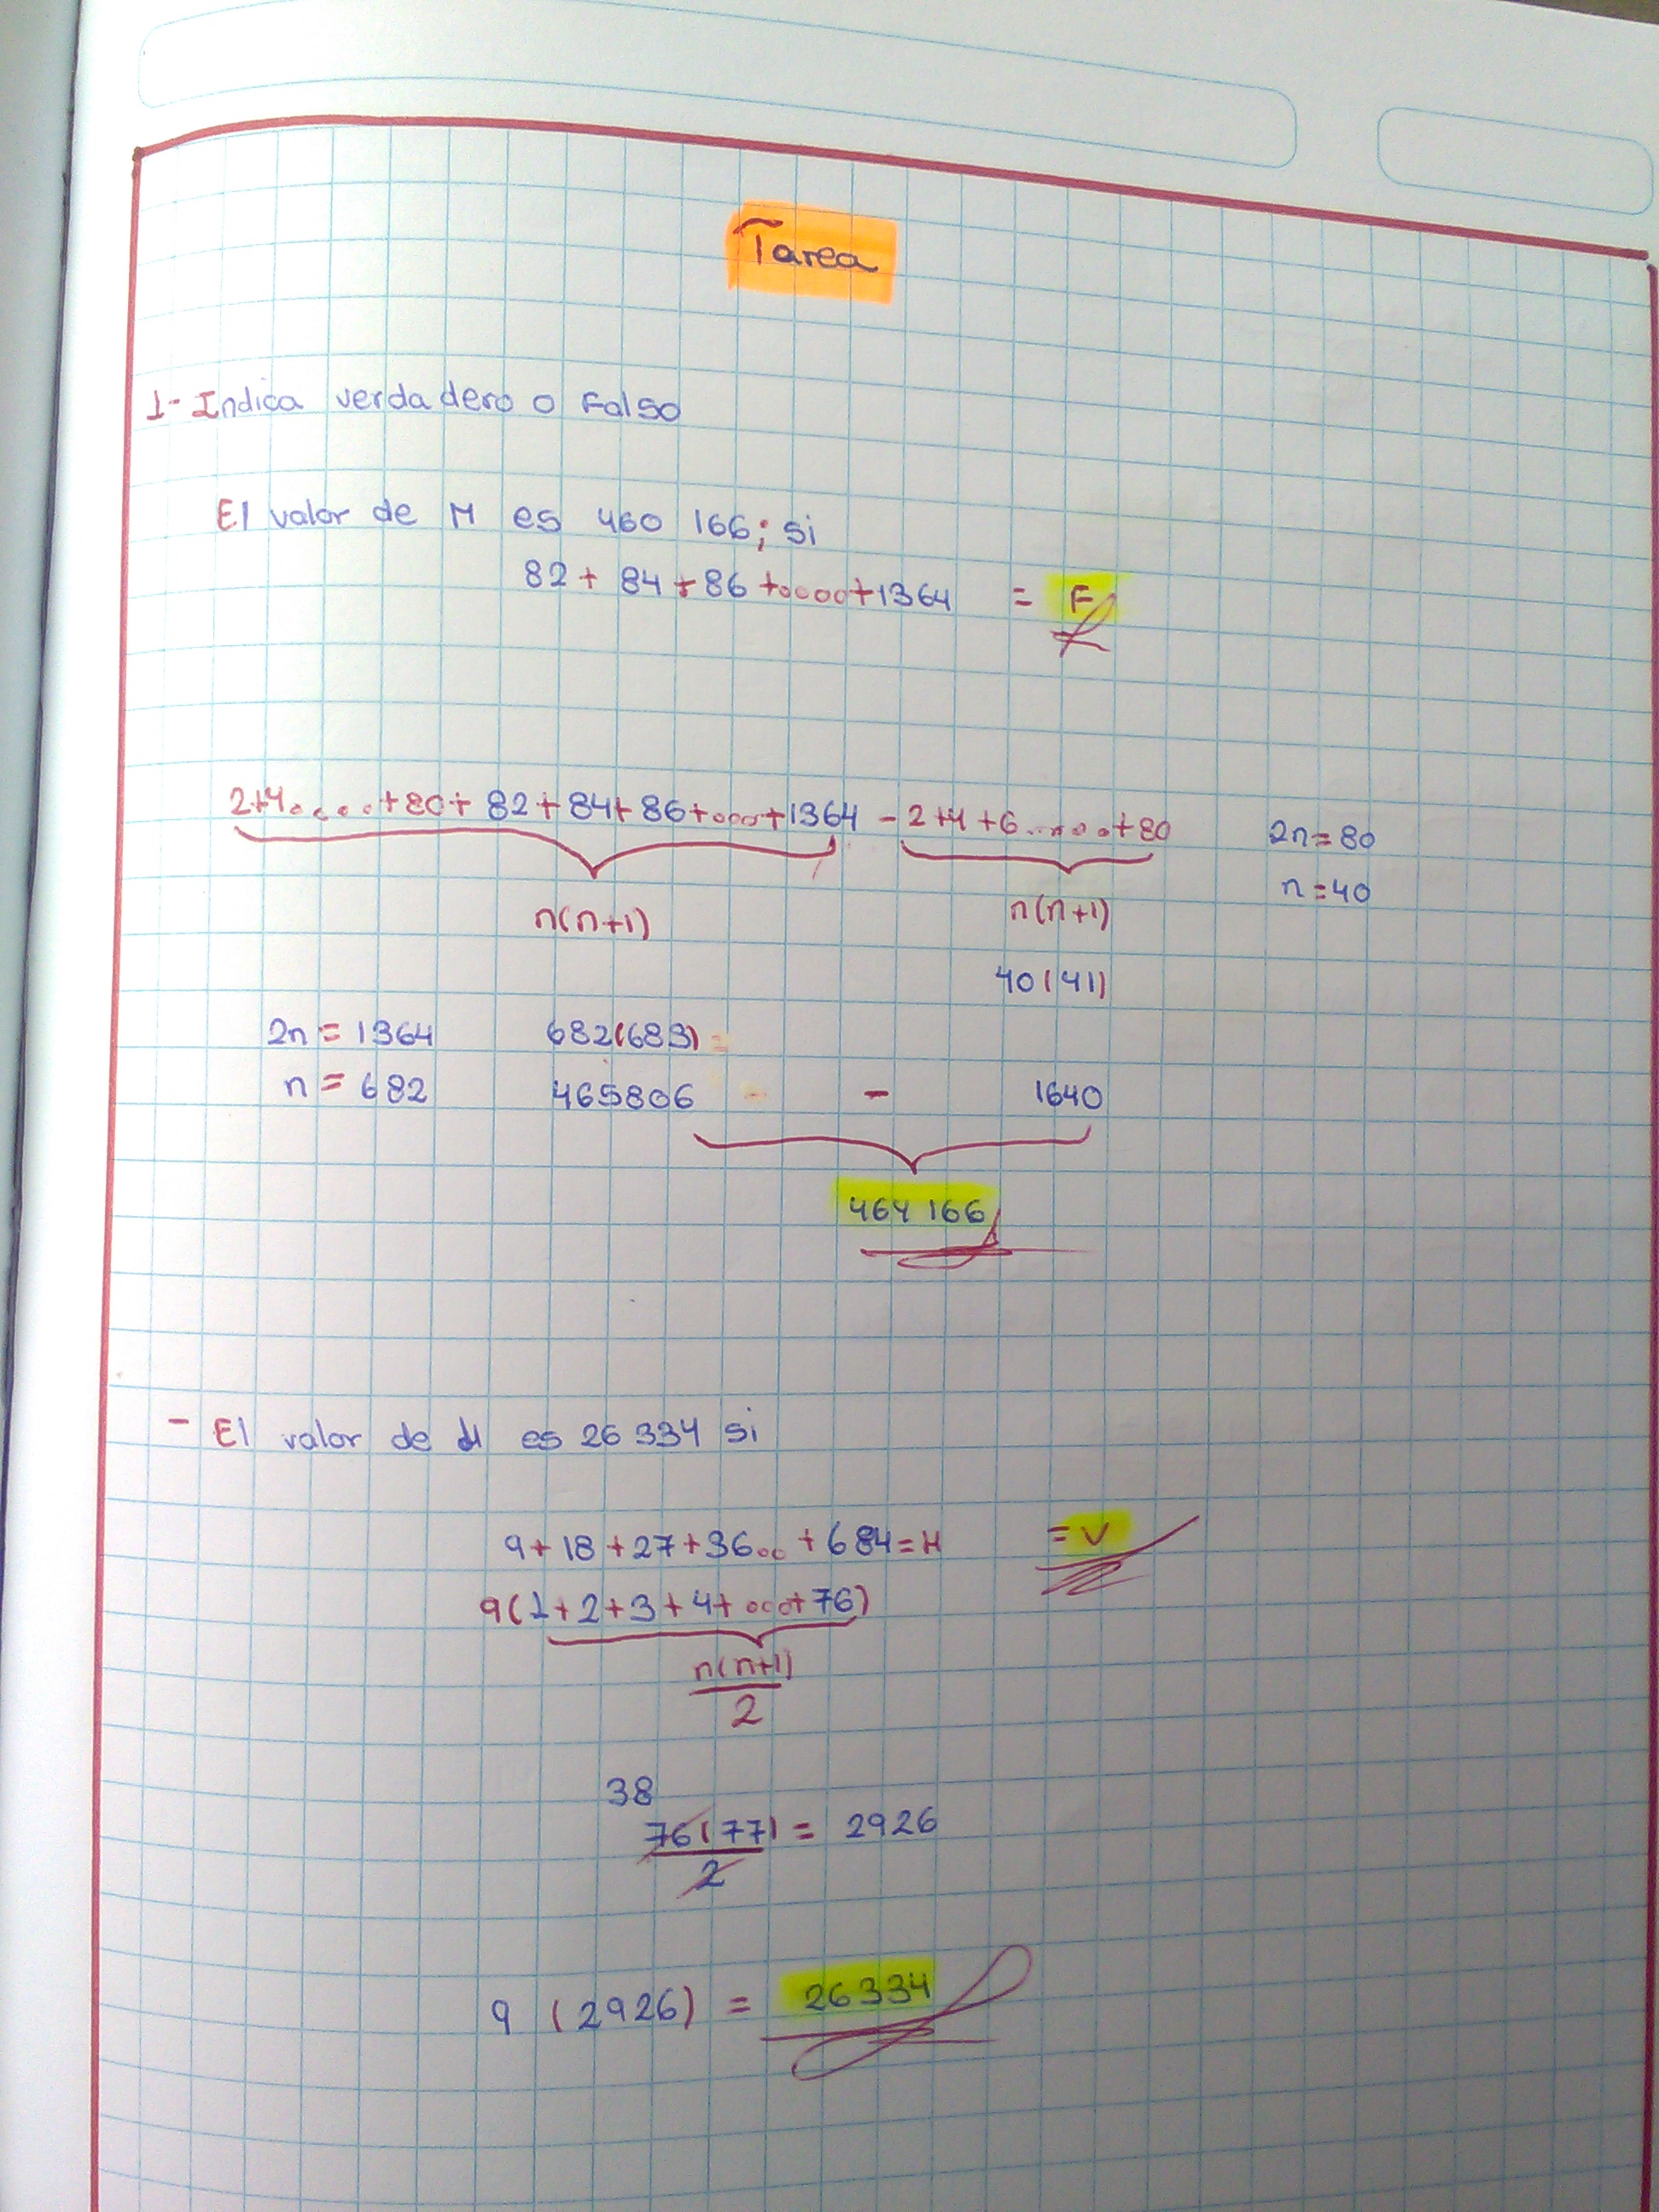 Tarea
1- Indica verdadero o Falso
El valor de M es 460 166; si
82 + 84 + 86 +oooo+1364 = F
2+4.....+80+ 82+84+86+ooo+1364 - 2+4+6.....+80 2n=80
n(n+1) n(n+1) n=40
40(41)
2n = 1364 682(683) =
n = 682 465806 - 1640
464 166
- El valor de M es 26 334 si
9+18+27+36oo +684=M =V
9(1+2+3+4+ooo+76)
n(n+1)
2
38
76(77) = 2926
2
9 (2926) = 26334